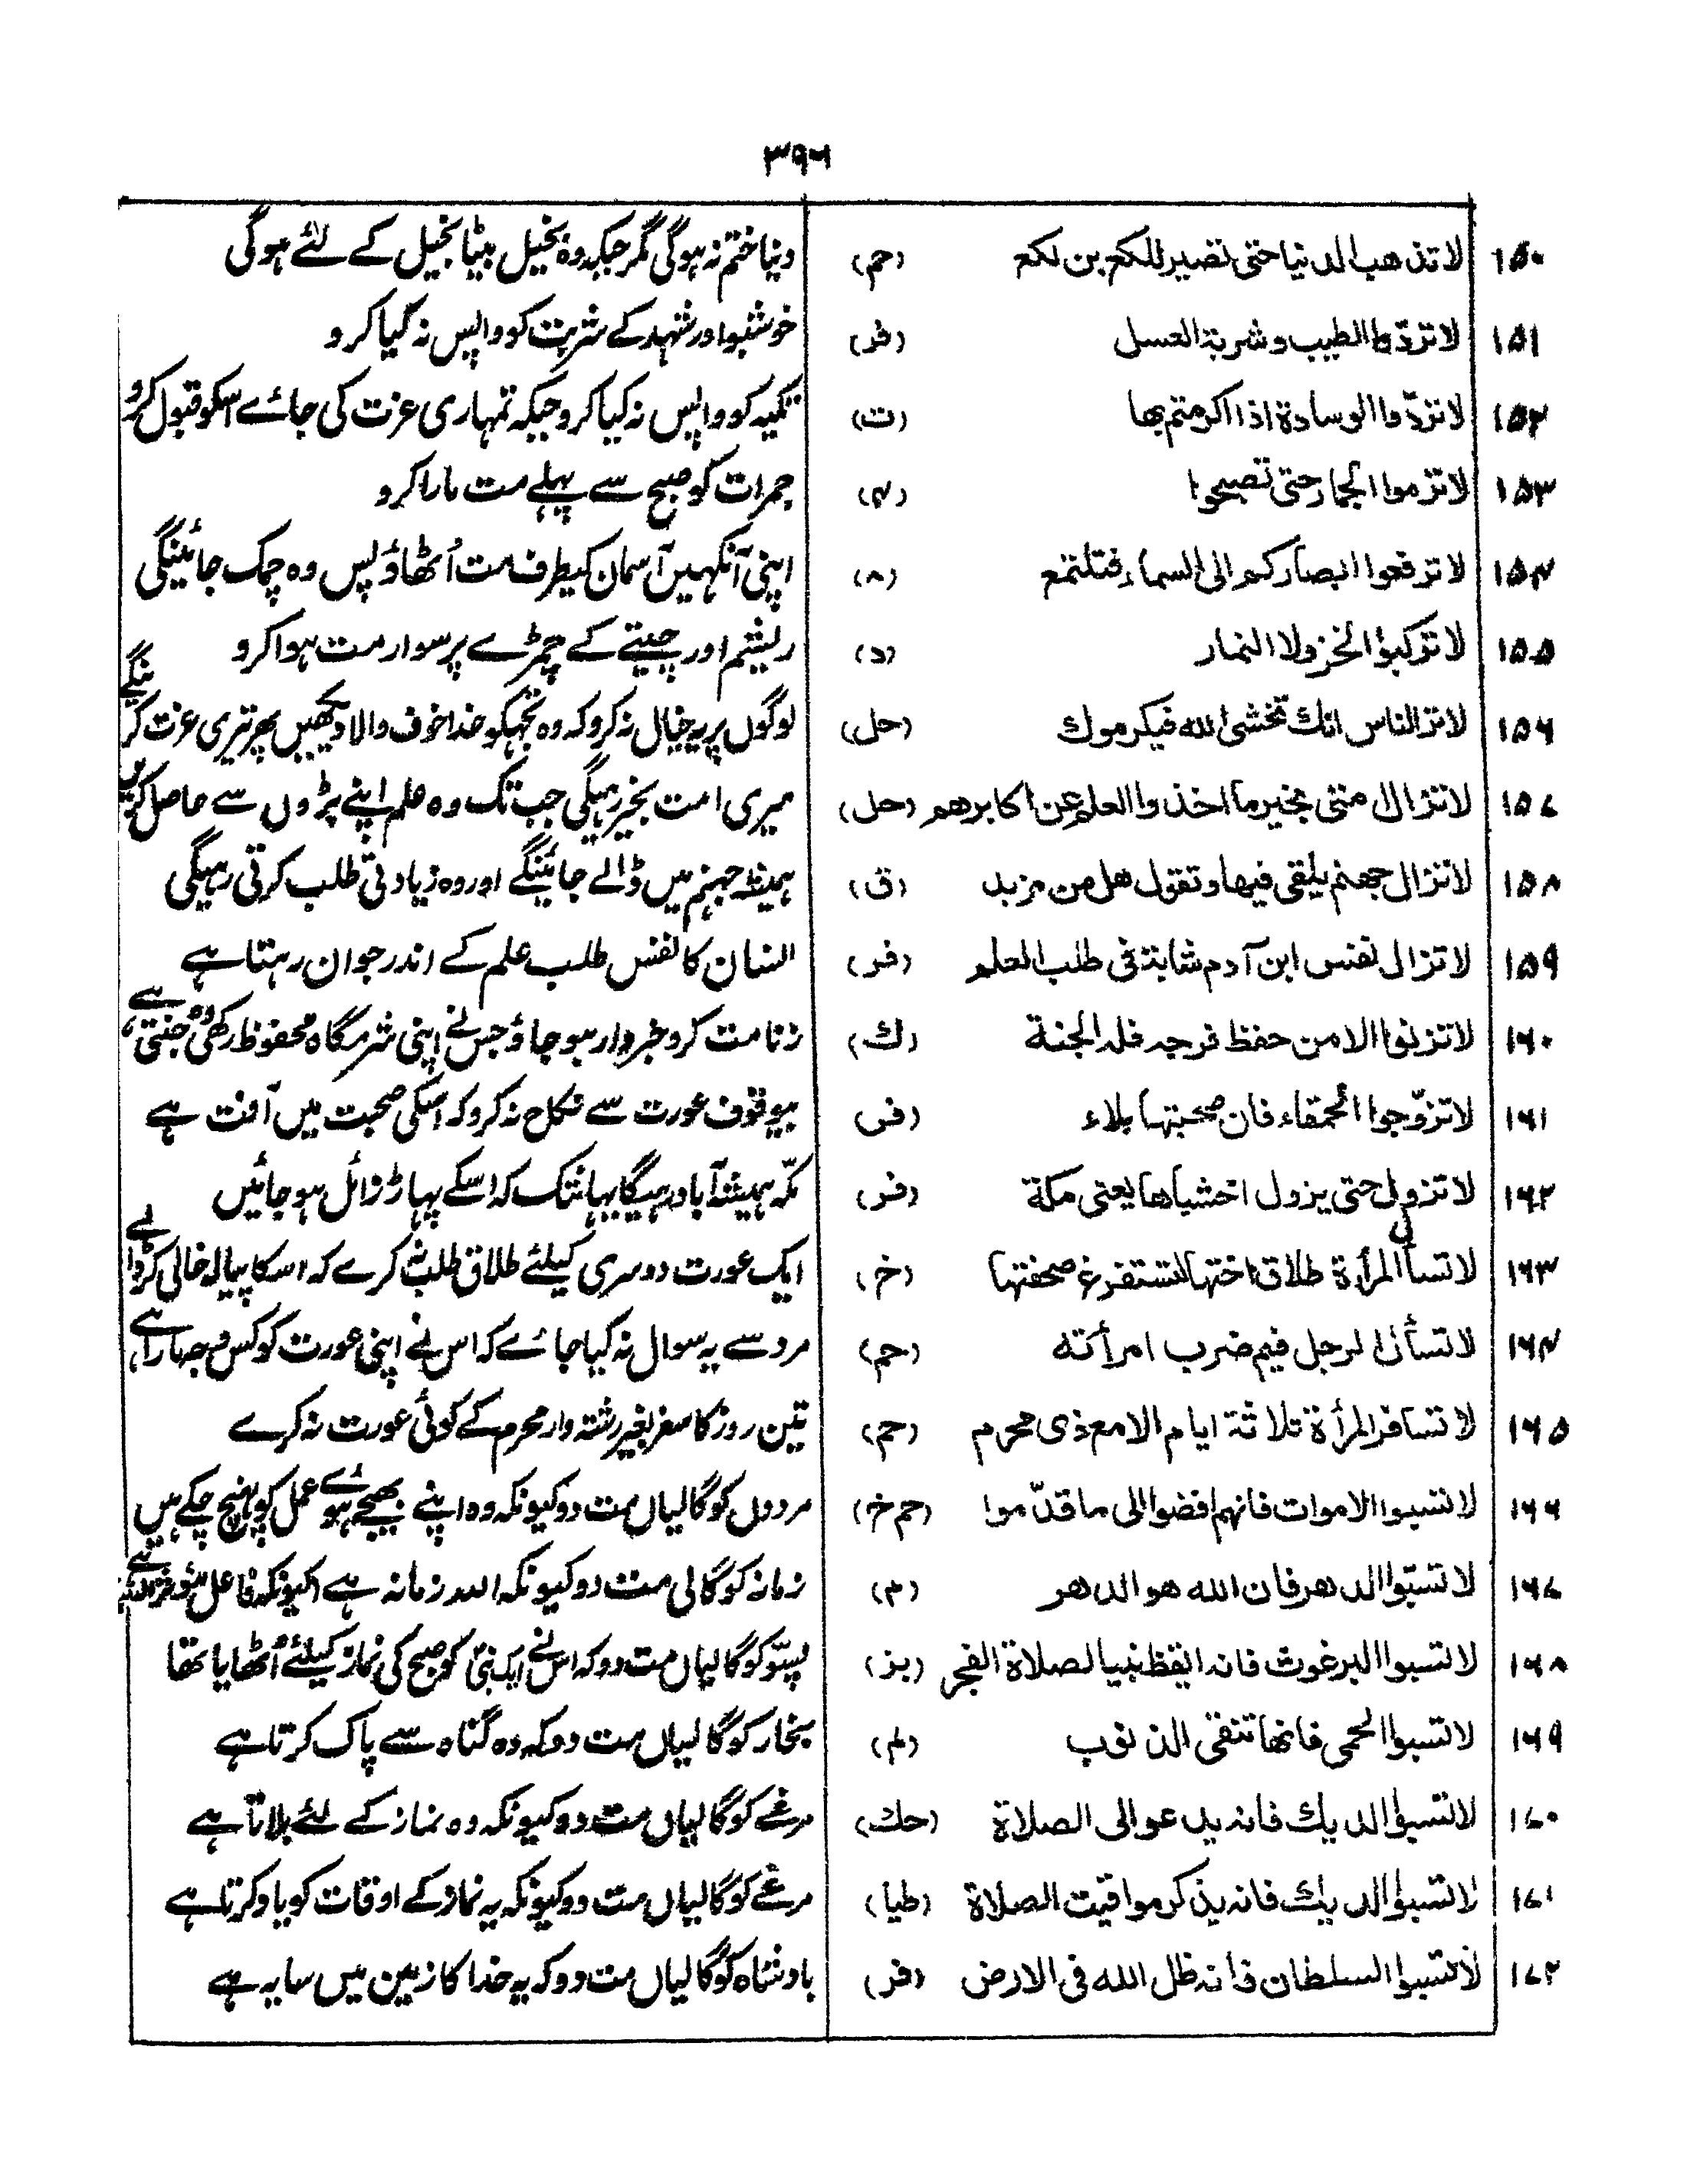 ۳۹۶
۱۵۰ لا تذهب الدنيا حتى تصير للكع بن لكع (حم) دنیا ختم نہ ہوگی مگر جبکہ وہ بخیل بیٹا بخیل کے لئے ہوگی
۱۵۱ لا تردّوا الطيب و شربة العسل (فر) خوشبو اور شہد کے شربت کو واپس نہ کیا کرو
۱۵۲ لا تردّوا الوسادة اذا اكرمتم بها (ت) تکیہ کو واپس نہ کیا کرو جبکہ تمہاری عزت کی جائے اسکو قبول کرو
۱۵۳ لا ترموا الجمار حتى تصبحوا جمرات کو صبح سے پہلے مت مارا کرو
۱۵۴ لا ترفعوا ابصاركم الى السماء فتلتمع (ہ) اپنی آنکہیں آسمان کیطرف مت اُٹھاؤ پس وہ چمک جائینگی
۱۵۵ لا تركبوا الخز ولا النمار (د) ریشم اور چیتے کے چمڑے پر سوار مت ہوا کرو
۱۵۶ لا تر الناس انك تخشى الله فيكرموك (حل) لوگوں پر یہ خیال نہ کرو کہ وہ تجہکو خدا خوف والا دیکھیں پھر تیری عزت کرینگے
۱۵۷ لا تزال امتى بخير ما اخذوا العلم عن اكابرهم (حل) میری امت بخیر رہیگی جب تک وہ علم اپنے بڑوں سے حاصل کریں
۱۵۸ لا تزال جهنم يلقى فيها و تقول هل من مزيد (ق) ہمیشہ جہنم میں ڈالے جائینگے اور وہ زیادتی طلب کرتی رہیگی
۱۵۹ لا تزال نفس ابن آدم شابة فى طلب العلم (فر) انسان کا نفس طلب علم کے اندر جوان رہتا ہے
۱۶۰ لا تزنوا الا من حفظ فرجه فله الجنة (ك) زنا مت کرو خبردار ہو جاؤ جس نے اپنی شرمگاہ محفوظ رکھی وہ جنتی ہے
۱۶۱ لا تزوّجوا الحمقاء فان صحبتها بلاء (فر) بیوقوف عورت سے نکاح نہ کرو کہ اسکی صحبت میں آفت ہے
۱۶۲ لا تزول حتى يزول اخشباها يعنى مكة (فر) مکّہ ہمیشہ آباد رہیگا یہانتک کہ اسکے پہاڑ زائل ہو جائیں
۱۶۳ لا تسأل المرأة طلاق اختها لتستفرغ صحفتها (خ) ایک عورت دوسری کیلئے طلاق طلب نہ کرے کہ اسکا پیالہ خالی کر ڈالے
۱۶۴ لا تسأل الرجل فيم ضرب امرأته (حم) مرد سے یہ سوال نہ کیا جائے کہ اس نے اپنی عورت کو کس وجہ مارا ہے
۱۶۵ لا تسافر المرأة ثلاثة ايام الا مع ذى محرم (حم) تین روز کا سفر بغیر رشتہ دار محرم کے کوئی عورت نہ کرے
۱۶۶ لا تسبوا الاموات فانهم افضوا الى ما قدّموا (حم خ) مردوں کو گالیاں مت دو کیونکہ وہ اپنے بھیجے ہوئے عمل کو پہنچ چکے ہیں
۱۶۷ لا تسبّوا الدهر فان الله هو الدهر (م) زمانہ کو گالی مت دو کیونکہ اللہ زمانہ ہے
۱۶۸ لا تسبوا البرغوث فانه ايقظ نبيا لصلاة الفجر (بز) پسّو کو گالیاں مت دو کہ اس نے ایک نبی کو صبح کی نماز کیلئے اُٹھایا تھا
۱۶۹ لا تسبوا الحمى فانها تنقى الذنوب بخار کو گالیاں مت دو کہ وہ گناہ سے پاک کرتا ہے
۱۷۰ لا تسبوا الديك فانه يدعو الى الصلاة (حك) مرغے کو گالیاں مت دو کیونکہ وہ نماز کے لئے بلاتا ہے
۱۷۱ لا تسبوا الديك فانه يذكر مواقيت الصلاة (طيا) مرغے کو گالیاں مت دو کیونکہ یہ نماز کے اوقات کو یاد کرتا ہے
۱۷۲ لا تسبوا السلطان فانه ظل الله فى الارض (فر) بادشاہ کو گالیاں مت دو کہ یہ خدا کا زمین میں سایہ ہے